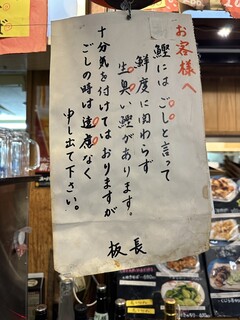 お客様へ
鰹には ごしと言って
鮮度に関わらず
生臭い鰹があります。
十分気を付けてはおりますが
ごしの時は遠慮なく
申し出て下さい。
板長